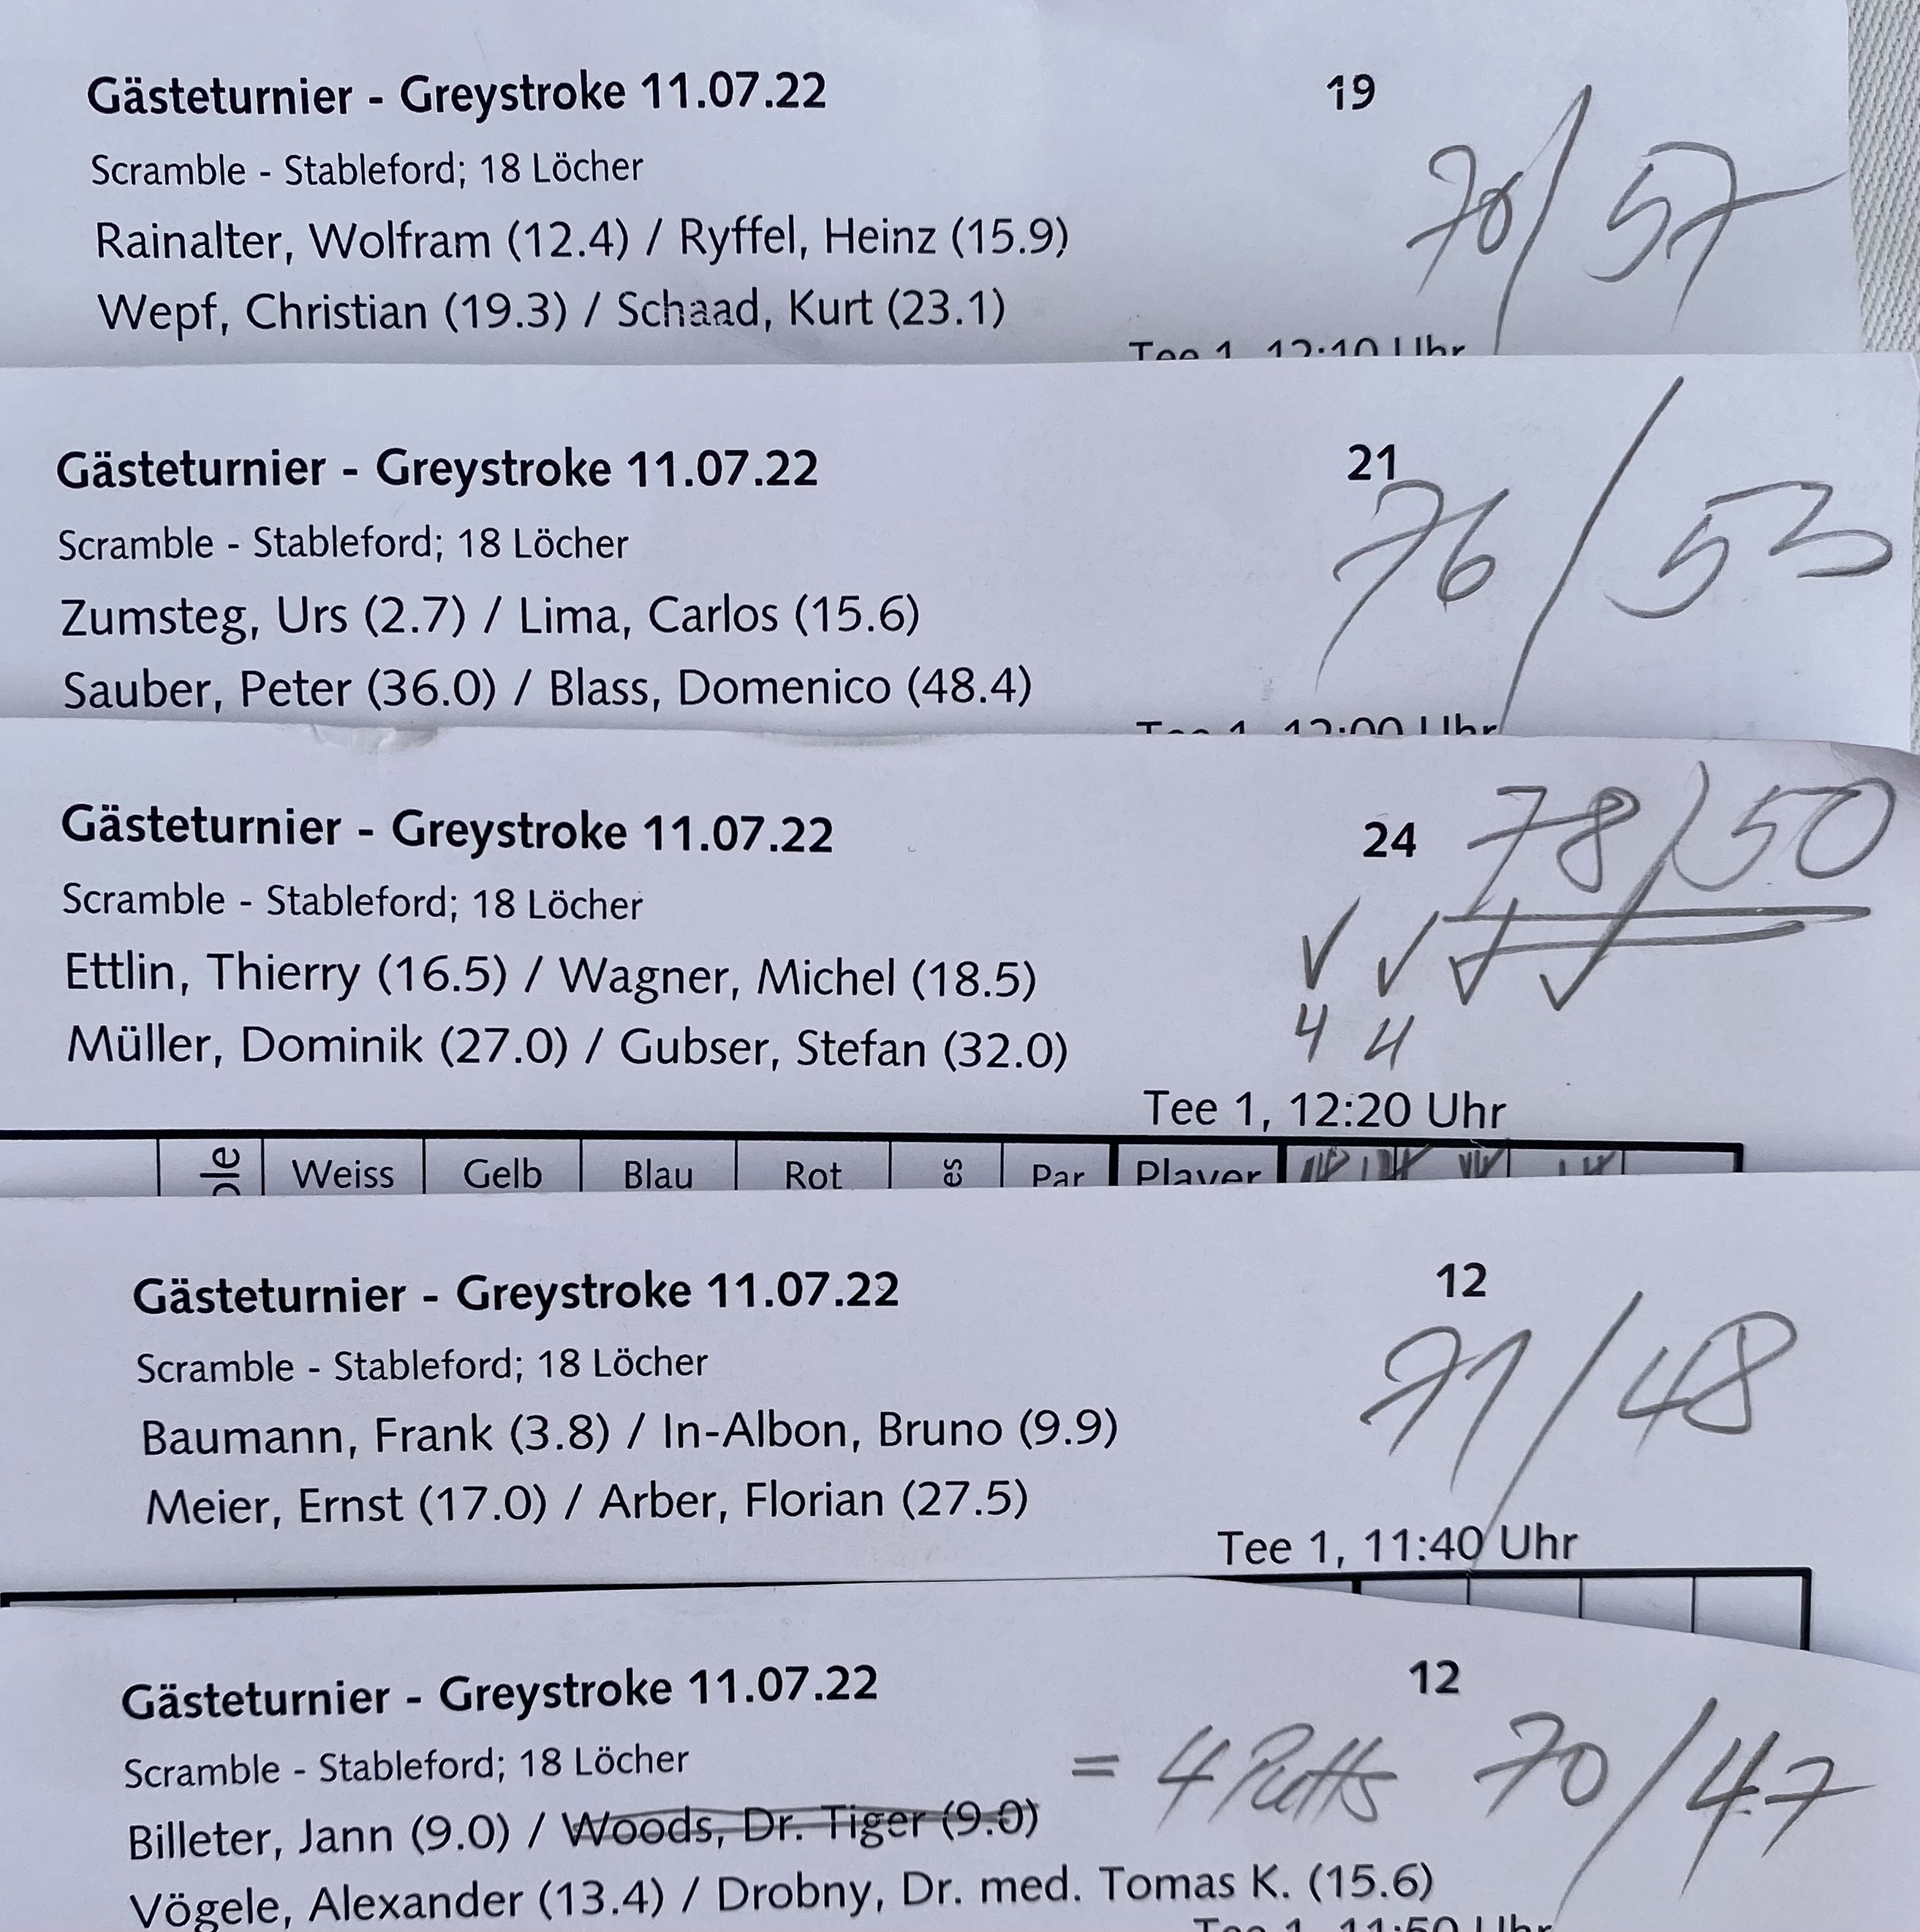 Gästeturnier - Greystroke 11.07.22 19
Scramble - Stableford; 18 Löcher 70/57
Rainalter, Wolfram (12.4) / Ryffel, Heinz (15.9)
Wepf, Christian (19.3) / Schaad, Kurt (23.1)
Tee 1, 12:10 Uhr
Gästeturnier - Greystroke 11.07.22 21
Scramble - Stableford; 18 Löcher 76/53
Zumsteg, Urs (2.7) / Lima, Carlos (15.6)
Sauber, Peter (36.0) / Blass, Domenico (48.4)
Tee 1, 12:00 Uhr
Gästeturnier - Greystroke 11.07.22 24 78/50
Scramble - Stableford; 18 Löcher
Ettlin, Thierry (16.5) / Wagner, Michel (18.5) ✓ ✓ ✓ ✓
Müller, Dominik (27.0) / Gubser, Stefan (32.0) 4 4
Tee 1, 12:20 Uhr
Weiss Gelb Blau Rot Par Player
Gästeturnier - Greystroke 11.07.22 12
Scramble - Stableford; 18 Löcher 71/48
Baumann, Frank (3.8) / In-Albon, Bruno (9.9)
Meier, Ernst (17.0) / Arber, Florian (27.5)
Tee 1, 11:40 Uhr
Gästeturnier - Greystroke 11.07.22 12
Scramble - Stableford; 18 Löcher = 4 Putts 70/47
Billeter, Jann (9.0) / Woods, Dr. Tiger (9.0)
Vögele, Alexander (13.4) / Drobny, Dr. med. Tomas K. (15.6)
Tee 1, 11:50 Uhr